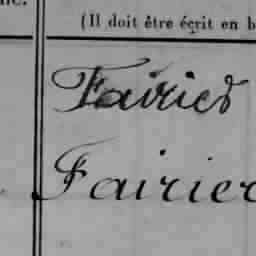 (Il doit être écrit en b
Fairier
Fairier